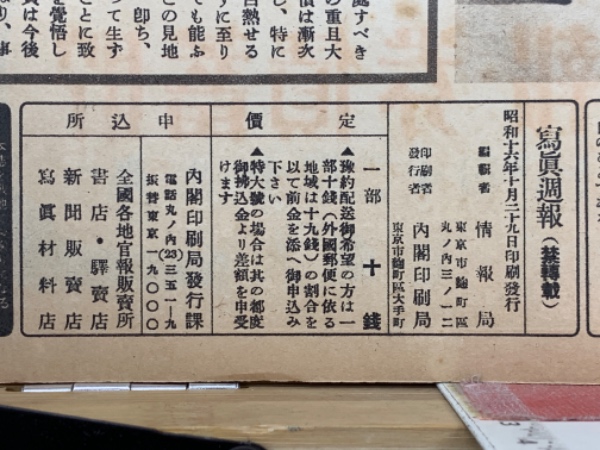 處すべき
の重且大
償は漸次
し、特に
白熱せる
ずに至り
ても能ふ
この見地
、卽ち、
つて生ず
ことに致
を覺悟し
員は今後
寫眞週報（禁轉載）
昭和十六年十月二十九日印刷發行
編輯者 情報局
東京市麴町區
丸ノ內三ノ一二
印刷者
發行者 內閣印刷局
東京市麴町區大手町
定價
一部 十錢
▲豫約配送御希望の方は一
部十錢（外國郵便に依る
地域は十九錢）の割合を
以て前金を添へ御申込み
下さい
▲特大號の場合は其の都度
御拂込金より差額を申受
けます
申込所
內閣印刷局發行課
電話丸ノ內(23)三五一一九
振替東京一九〇〇〇
全國各地官報販賣所
書店・驛賣店
新聞販賣店
寫眞材料店